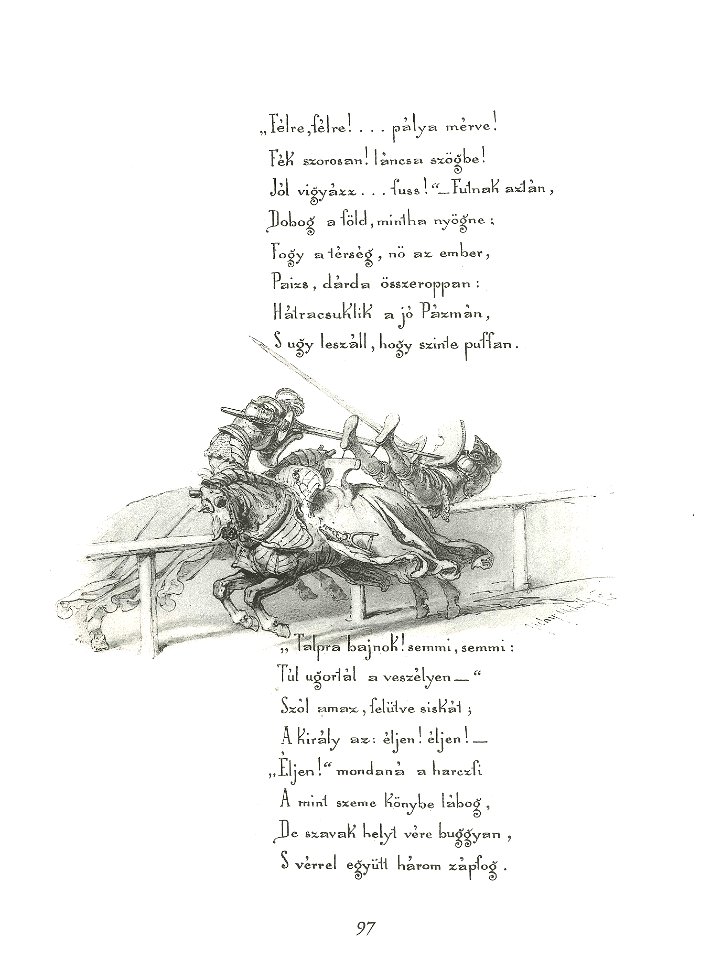 „Félre, félre! . . . pálya mérve!
Fék szorosan! láncsa szögbe!
Jól vigyázz . . . fuss!“ — Futnak aztán,
Dobog a föld, mintha nyögne;
Fogy a térség, nö az ember,
Paizs, dárda összeroppan:
Hátracsuklik a jó Pázmán,
S ugy leszáll, hogy szinte puffan.
„Talpra bajnok! semmi, semmi:
Túl ugortál a veszélyen —“
Szól amaz, felütve siskát;
A király az: éljen! éljen! —
„Éljen!“ mondaná a harczfi
A mint szeme könybe lábog,
De szavak helyt vére buggyan,
S vérrel együtt három zápfog.
97